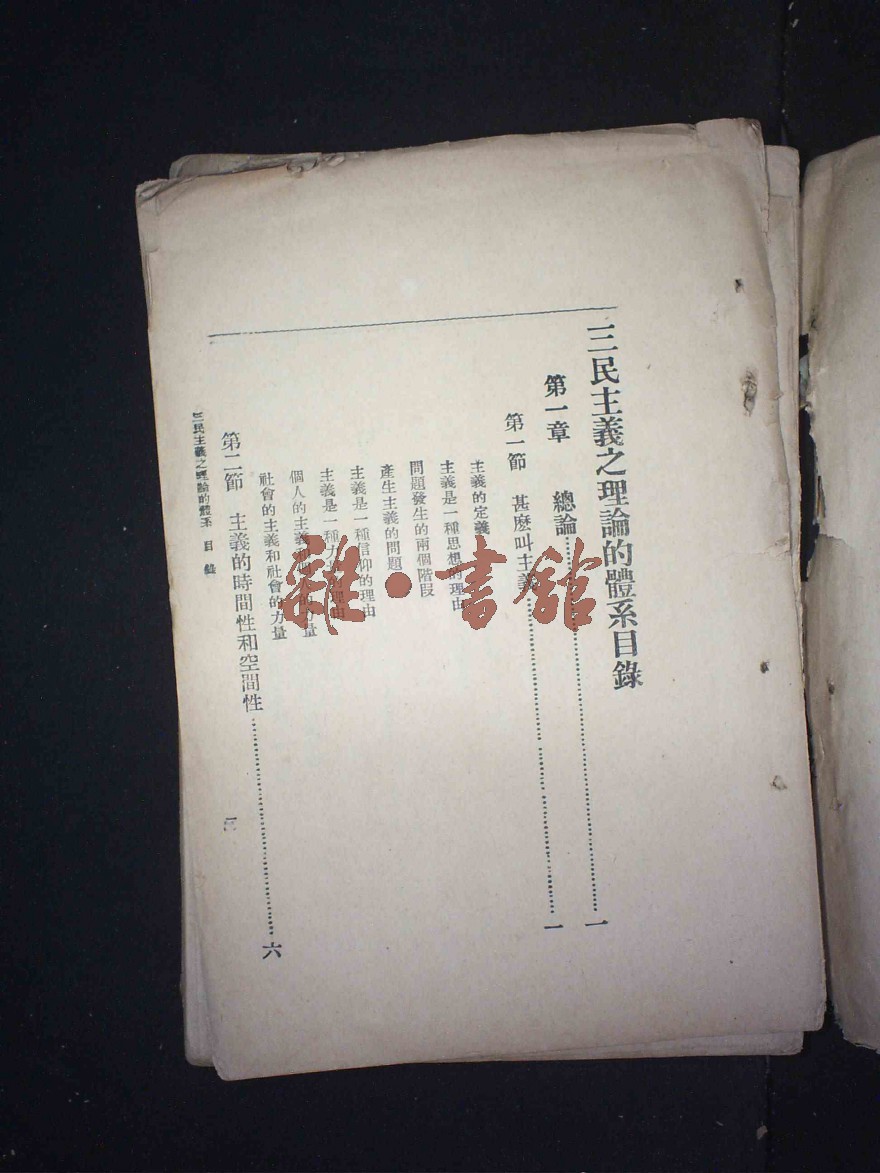 三民主義之理論的體系目錄
第一章 總論……一
第一節 甚麽叫主義……一
主義的定義
主義是一種思想的理由
問題發生的兩個階段
產生主義的問題
主義是一種信仰的理由
主義是一種力量的理由
個人的主義和個人的力量
社會的主義和社會的力量
第二節 主義的時間性和空間性……六
三民主義之理論的體系 目錄
雜·書館